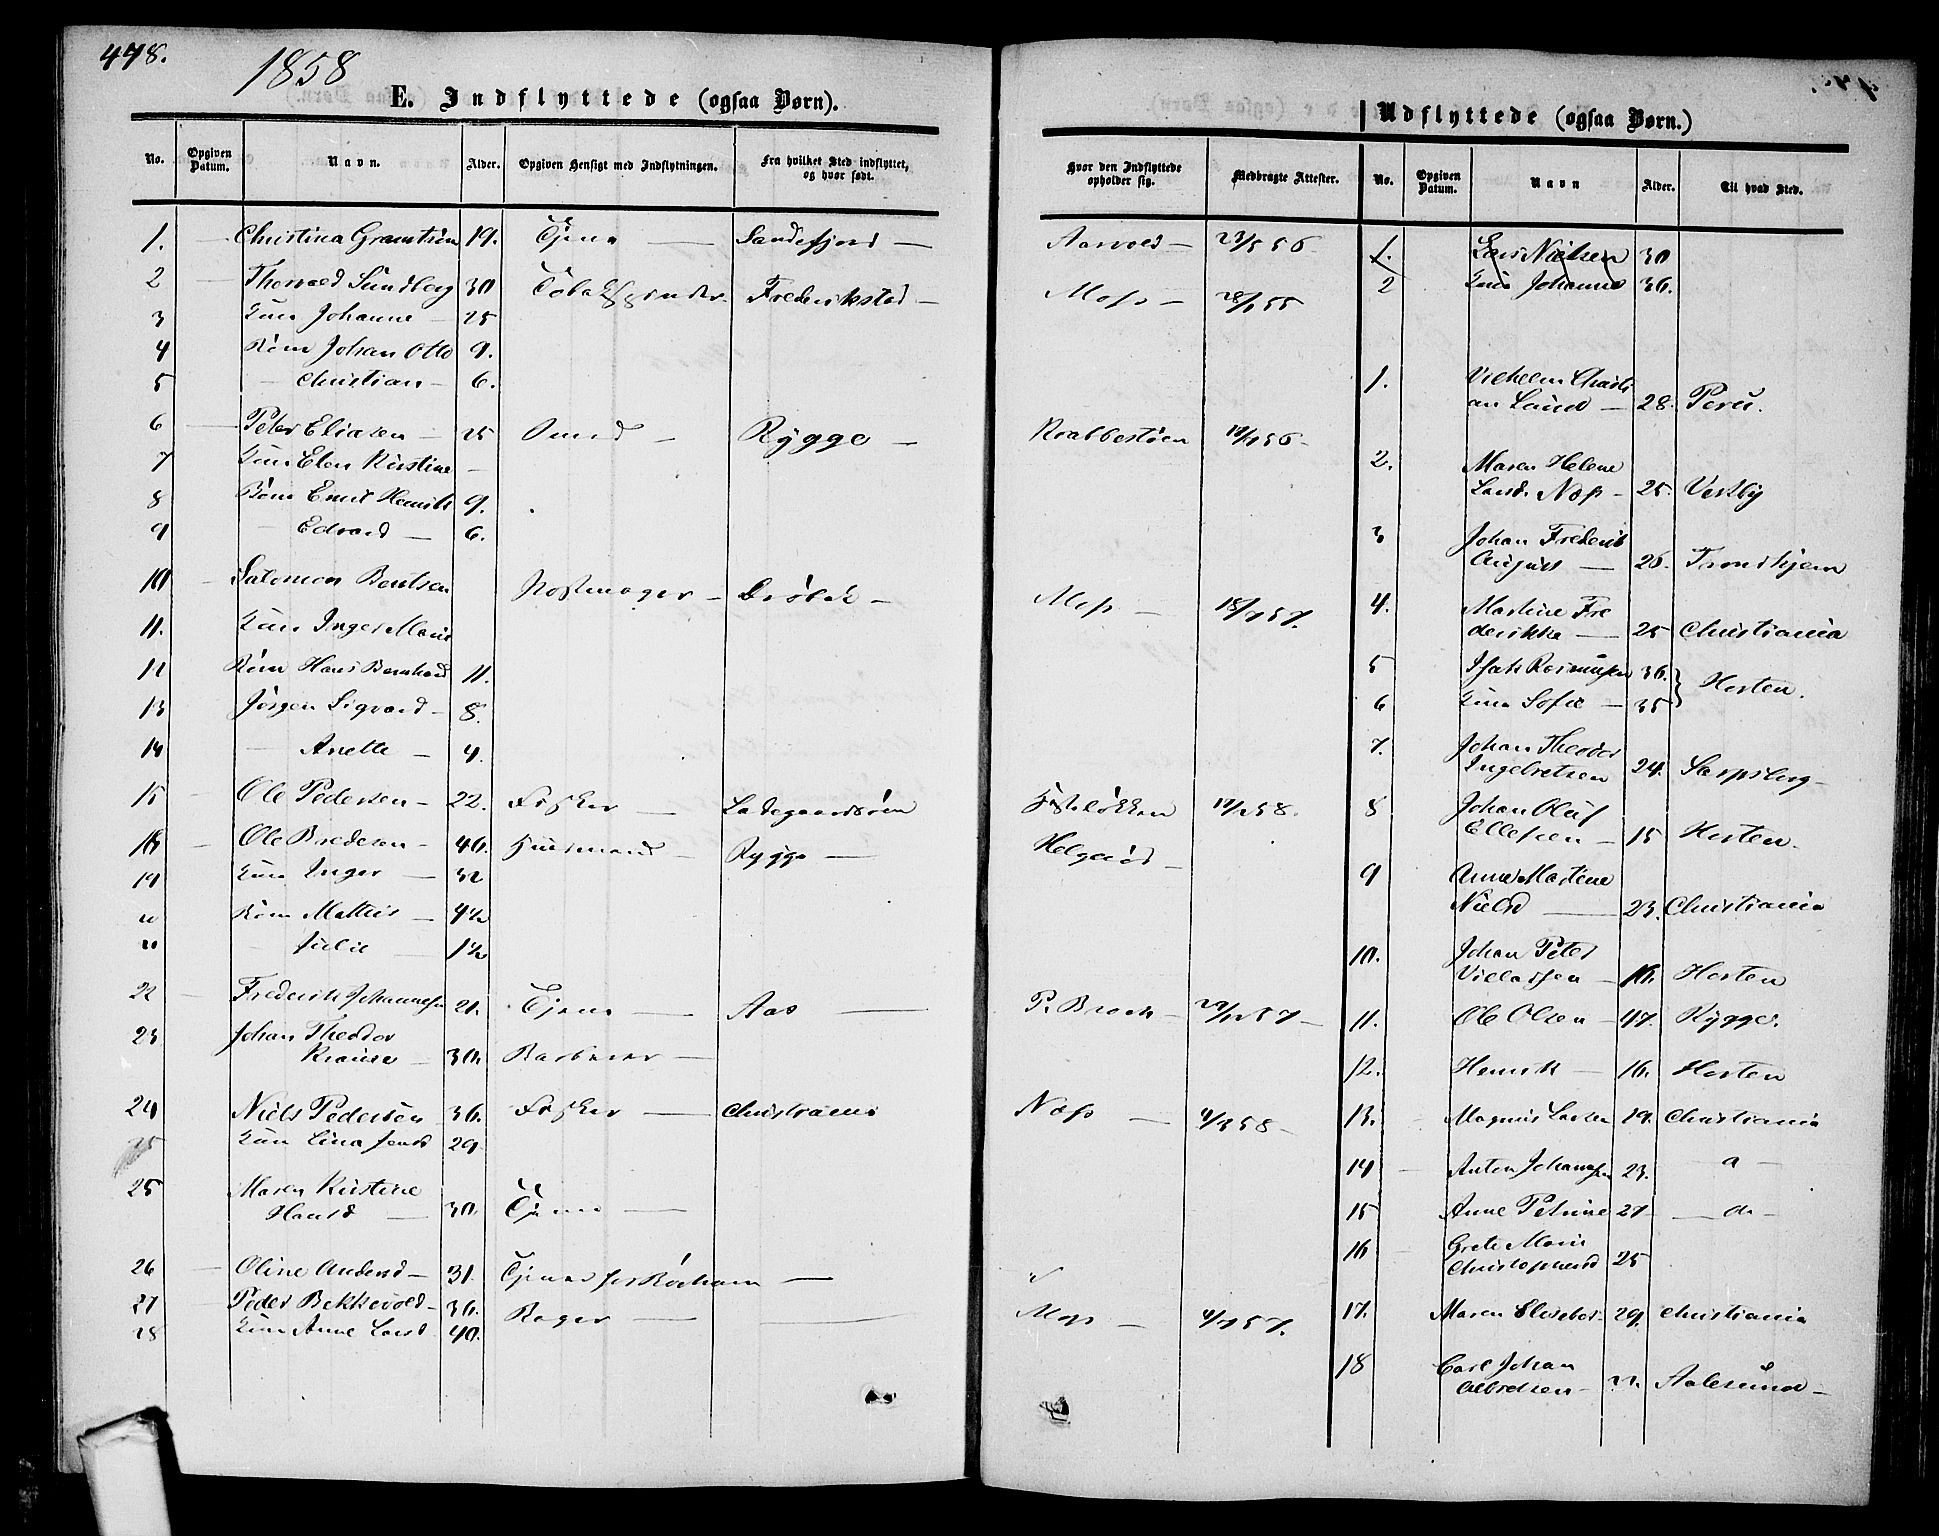 478.
1858
E. Indflyttede (ogsaa Børn).
No. Opgiven Datum. Navn. Alder. Opgiven Hensigt med Indflytningen. Fra hvilket Sted indflyttet, og hvor født.
Hvor den Indflyttede opholder sig. Medbragte Attester.
1. Christina 19. Tjene Sandefjord 23/5 56
2 Thorvald Sundberg 30 Frederikstad Moss 28/ 55
3 Kone Johanne 25
4 Børn Johan Otto 9.
5 Christian 6.
6 Peter Eliasen 25 Rygge 56
7 Kone Elen Kirstine
8 Børn Emil Henrik 9.
9 Edvard 6.
10 Salomon Bentsen Drøbak Moss 57.
11. Kone Inger Marie
12 Børn Hans Bernhard 11.
13 Jørgen Sigvard 8.
14 Anette 4.
15 Ole Pedersen 22. Fisker Ladegaardsøen 58.
Ole Bredesen 40. Huusmand Rygge
19 Kone Inger 32
Børn Mathis 4½
Julie 1½
22 Frederik Johannesen 21. Tjene Aas P. Brock 57
23 Johan Theodor
Krause 30. Barberer
24 Niels Pedersen 36. Fisker Christiania Næss 58
25 Kone Lina Jensd 29
25 Maren Kirstine
Hansd 30. Tjene
26 Oline Andersd 31. Tjener for
27 Peder Bekkevold 36. Bager Moss 57.
28 Kone Anne Larsd 40.
Udflyttede (ogsaa Børn.)
No. Opgiven Datum. Navn Alder. Til hvad Sted.
1. Lars Nielsen 30
2 Kone Johanne 36.
1. Vilhelm Christi
an Lund 28. Peru.
2. Maren Helene
Larsd. Næss 25. Vestby
3 Johan Frederik
August 26. Trondhjem
4. Martine Fre
derikke 25 Christiania
5 Isak Rasmussen 36. Horten.
6 Kone Sofie 35
7. Johan Theodor
Ingebretsen 24. Sarpsborg
8 Johan Oluf
Ellefsen 15 Horten.
9 Anne Martene
Nielsd 23. Christiania
10. Johan Peter
16. Horten
11. Ole Olsen 47. Rygge.
12. Henrik 16. Horten
13. Magnus Larsen 19. Christiania
14 Anton Johannsen 23.
15 Anne Petrine 27 do
16 Grete Marie
Christophersd 25
17. Maren Elisabet 29. Christiania
18 Carl Johan
Aalesund